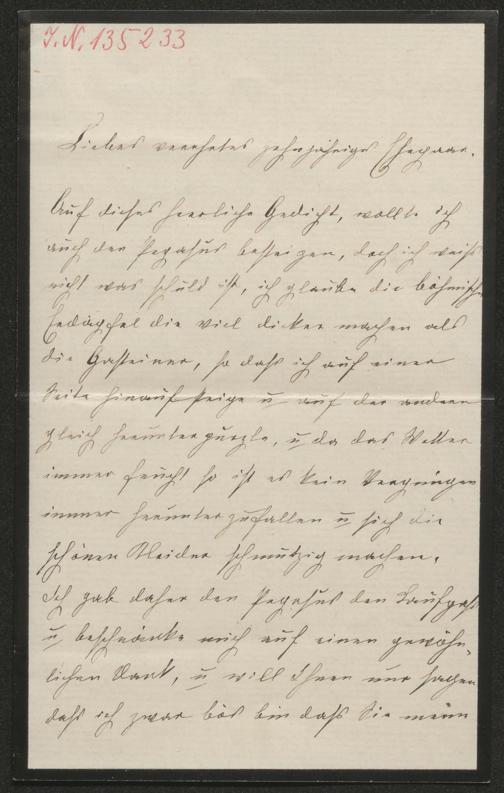 I.N. 135233
Liebes verehrtes zehnjähriges Ehepaar.
Auf dieses herrliche Gedicht, wollte ich
auch den Pegasus besteigen, doch ich weiß
nicht was schuld ist, ich glaube die böhmische
Erdäpfel die viel dicker machen als
die Gasteiner, so daß ich auf einer
Seite hinauf steige u auf der andern
gleich herunterpurzle, u da das Wetter
immer feucht so ist es kein Vergnügen
immer herunterzufallen u sich die
schönen Kleider schmutzig machen.
Ich gab daher den Pegasus den Laufpaß
u beschränke mich auf einen gewöhn-
lichen Dank, u will Ihnen nur sagen
daß ich zwar bös bin daß Sie mein